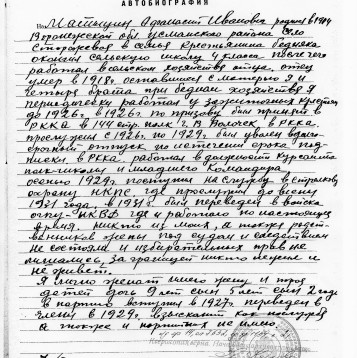 АВТОБИОГРАФИЯ
Матицин Афанасий Иванович родился в 1904
Воронежской обл Усманского района село
Сторожевая в семье крестьянина бедняка
окончил сельскую школу 4 класса, после чего
работал в сельском хозяйстве отца, отец
умер в 1918г. оставшись с матерью я и
четыре брата при бедном хозяйстве я
периодически работал у зажиточных крестьян
до 1926г в 1926г. по призыву был принят в
РККА в 144 стр. полк г. В. Волочек в РККА.
прослужил с 1926г по 1929г был уволен в долго-
срочный отпуск по истечении срока под-
писки в РККА работал в должности курсанта
полк-школы и младшего командира
осенью 1929г. поступил на службу в стрелков.
охрану НКПС где прослужил до весны
1931 года, в 1931г. был переведен в войска
ОГПУ-НКВД где и работаю по настоящее
время. никто из моих, а также родст-
венников жены под судом и следствием
не состояли и избирательных прав не
лишались, за границей никто не был и
не живет.
Я лично женат имею жену и трое
детей дочь 9 лет сын 5 лет сын 2 года
В партию вступил в 1927г переведен в
члены в 1929г. взысканий как
а также и партийных не имею.